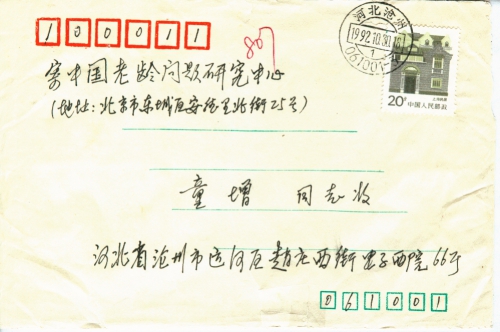 100011
807
河北沧州
1992.10.30.16
1
061001
20分 中国人民邮政
上海民居
寄中国老龄问题研究中心
(地址:北京市东城区安德里北街25号)
童增 同志收
河北省沧州市运河区赵庄西街 西院66号
061001